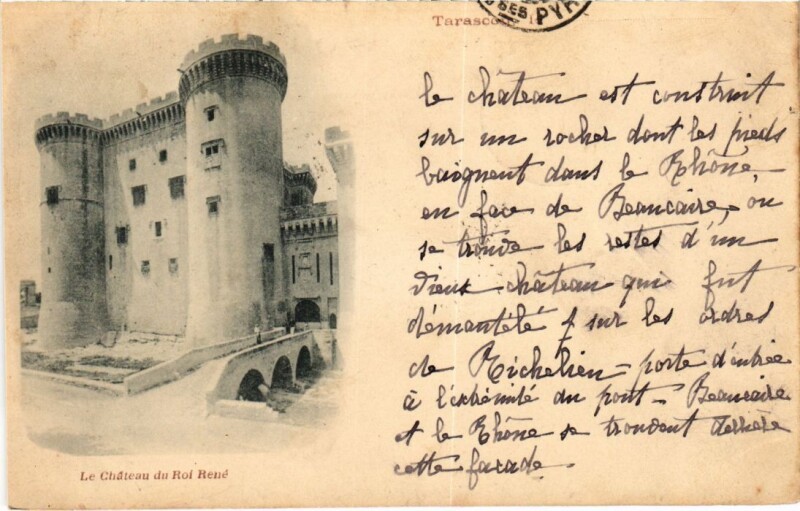 Tarascon
PYR
le château est construit
sur un rocher dont les pieds
baignent dans le Rhône,
en face de Beaucaire, où
se trouve les restes d'un
vieux château qui fut
démantélé sur les ordres
de Richelieu - porte d'entrée
à l'extrémité du pont - Beaucaire
et le Rhône se trouvent derrière
cette façade.
Le Château du Roi René